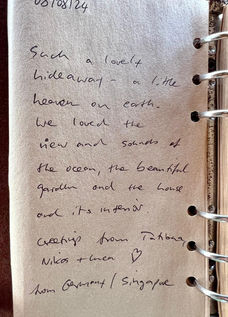 08/08/24
Such a lovely
hideaway - a little
heaven on earth.
We loved the
view and sounds of
the ocean, the beautiful
garden and the house
and its interior.
Greetings from Tatiana
Nikos + Luca ♡
from Germany / Singapore